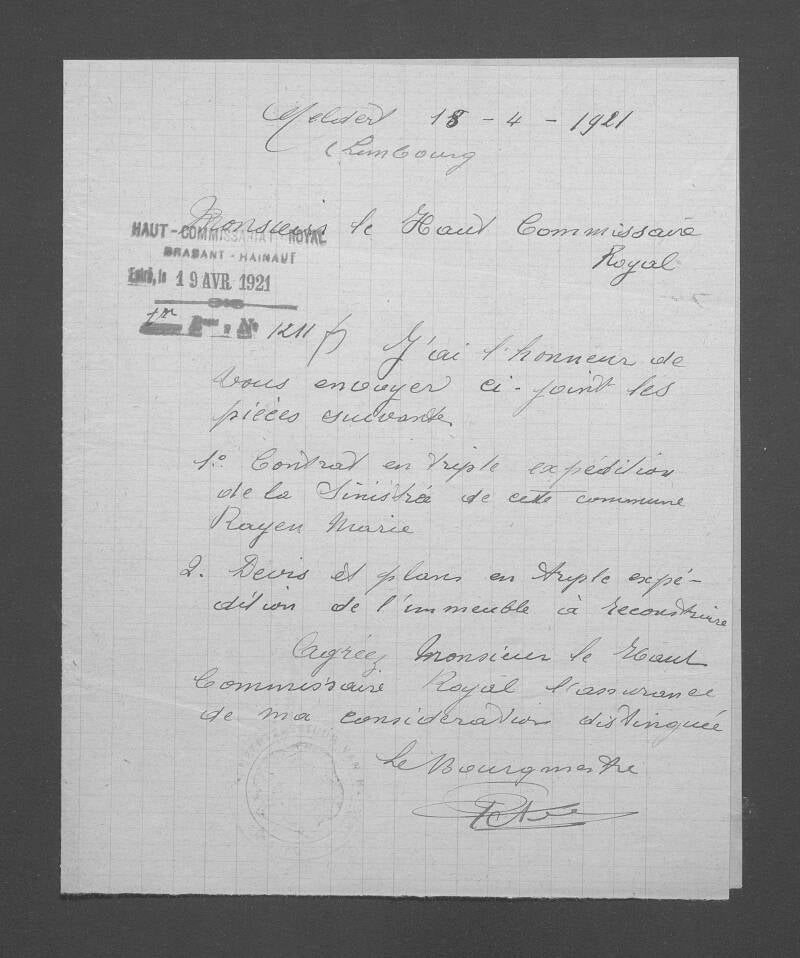 Meldert 18 - 4 - 1921
(Limbourg
Monsieur le Haut Commissaire
Royal
HAUT-COMMISSARIAT ROYAL
BRABANT - HAINAUT
Entré, le 19 AVR. 1921
No 1211
J'ai l'honneur de
vous envoyer ci-joint les
pièces suivantes
1:o Contrat en triple expédition
de la Sinistrée de cette commune
Rayen Marie
2. Devis et plans en triple expé-
dition de l'immeuble à reconstruire
Agréez Monsieur le Haut
Commissaire Royal l'assurance
de ma consideration distinguée
Le Bourgmestre